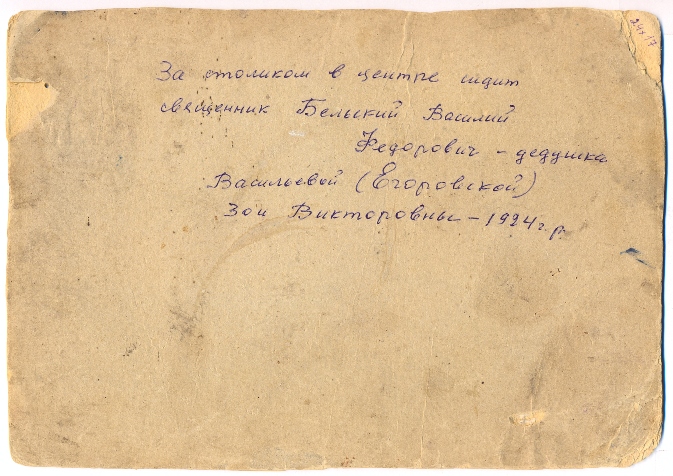 24х17
За столиком в центре сидит
священник Бельский Василий
Федорович - дедушка
Васильевой (Егоровской)
Зои Викторовны - 1924 г.р.